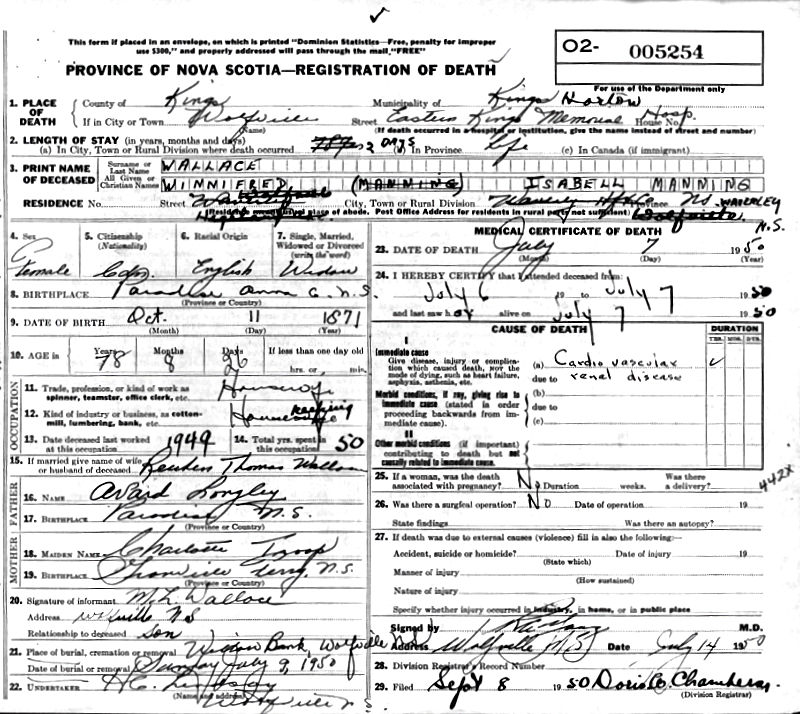 This form if placed in an envelope, on which is printed "Dominion Statistics—Free, penalty for improper
use $300," and properly addressed will pass through the mail, "FREE"
O2- 005254
PROVINCE OF NOVA SCOTIA—REGISTRATION OF DEATH
For use of the Department only
1. PLACE OF DEATH County of Kings Municipality of Kings Horton
If in City or Town Wolfville Street Eastern Kings Memorial Hosp. House No.
(Name) (If death occurred in a hospital or institution, give the name instead of street and number)
2. LENGTH OF STAY (in years, months and days)
(a) In City, Town or Rural Division where death occurred 2 DAYS (b) In Province life (c) In Canada (if immigrant)
3. PRINT NAME OF DECEASED Surname or Last Name WALLACE
All Given or Christian Names WINNIFRED (MANNING) ISABELL MANNING
RESIDENCE No. Street City, Town or Rural Division Province N.S. WAVERLEY
(Residence means usual place of abode. Post Office Address for residents in rural parts not sufficient) Wolfville. N.S.
4. Sex Female
5. Citizenship (Nationality) Cdn.
6. Racial Origin English
7. Single, Married, Widowed or Divorced (write the word) Widow
8. BIRTHPLACE Paradise Anna Co. N.S.
(Province or Country)
9. DATE OF BIRTH Oct. 11 1871
(Month) (Day) (Year)
10. AGE in Years 78 Months 8 Days 26 If less than one day old
hrs. or min.
OCCUPATION
11. Trade, profession, or kind of work as spinner, teamster, office clerk, etc. Housewife
12. Kind of industry or business, as cotton-mill, lumbering, bank, etc. keeping
13. Date deceased last worked at this occupation 1949 14. Total yrs. spent in this occupation 50
15. If married give name of wife or husband of deceased Reuben Thomas Wallace
FATHER
16. NAME Avard Longley
17. BIRTHPLACE Paradise N.S.
(Province or Country)
MOTHER
18. MAIDEN NAME Charlotte Troop
19. BIRTHPLACE Granville Ferry, N.S.
(Province or Country)
20. Signature of informant M. L. Wallace
Address Wolfville N S
Relationship to deceased son
21. Place of burial, cremation or removal Bank, Wolfville N.S.
Date of burial or removal Sunday July 9, 1950
22. UNDERTAKER
(Name and address) Wolfville N S.
MEDICAL CERTIFICATE OF DEATH
23. DATE OF DEATH July 7 1950
(Month) (Day) (Year)
24. I HEREBY CERTIFY that I attended deceased from:
July 6 19 to July 7 1950
and last saw her alive on July 7 1950
CAUSE OF DEATH DURATION
YRS. MOS. DYS.
I
Immediate cause
Give disease, injury or complication which caused death, NOT the mode of dying, such as heart failure, asphyxia, asthenia, etc.
(a) Cardio vascular
due to renal disease
Morbid conditions, if any, giving rise to immediate cause (stated in order proceeding backwards from immediate cause).
(b)
due to
(c)
II
Other morbid conditions (if important) contributing to death but not causally related to immediate cause.
25. If a woman, was the death associated with pregnancy? No Duration weeks. Was there a delivery?
442X
26. Was there a surgical operation? No Date of operation 19
State findings Was there an autopsy?
27. If death was due to external causes (violence) fill in also the following:—
Accident, suicide or homicide? Date of injury 19
(State which)
Manner of injury
(How sustained)
Nature of injury
Specify whether injury occurred in industry, in home, or in public place
Signed by M.D.
Address Wolfville N.S. Date July 14 1950
28. Division Registrar's Record Number
29. Filed Sept 8 1950 Doris Co. Chambers.
(Division Registrar)